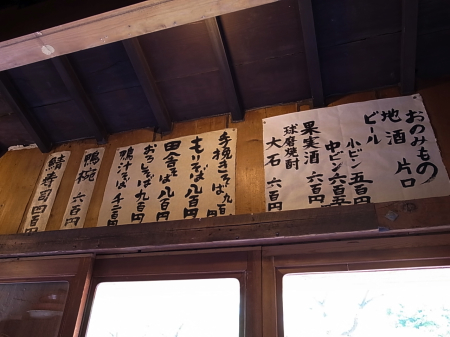 おのみもの
地酒 片口
ビール
小ビン 五百円
中ビン 六百五十円
果実酒 六百円
球磨焼酎
大石 六百円
手挽きそば 九百円
もりそば 八百円
田舎そば 八百円
おろしそば 九百円
鴨汁そば 千二百円
鴨椀 六百円
鯖寿司 四百円